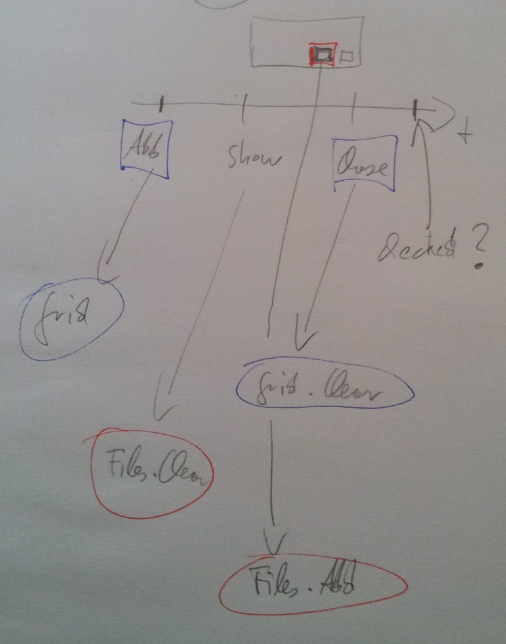 Add
Show
Close
t
?
Grid
Grid.Clear
Files.Clear
Files.Add